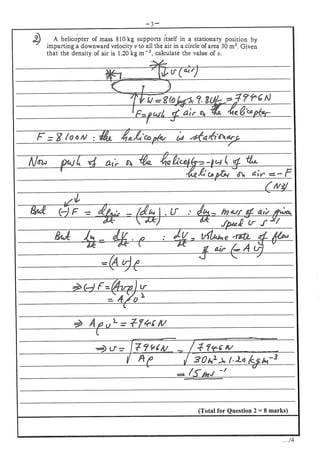 -3-
2) A helicopter of mass 810 kg supports itself in a stationary position by
imparting a downward velocity v to all the air in a circle of area 30 m². Given
that the density of air is 1.20 kg m⁻³, calculate the value of v.
v (air)
W = 810 kg x 9.81 = 7946 N
F = push of air on the helicopter
F = 8100N : the helicopter is stationary
Now push of air on the helicopter = - push of the
helicopter on air = - F
(N3)
But (-) F = = (dm/dt) . v : dm/dt = mass of air given
speed v s⁻¹
But dm/dt = dV/dt . ρ : dV/dt = volume rate of flow
of air (= A v)
= (A v) ρ
⇒ (-) F = (Avρ) v
= Aρv²
⇒ Aρv² = 7946 N
⇒ v = √ 7946N / Aρ = √ 7946N / 30m² x 1.20 kg m⁻³
= 15 ms⁻¹
(Total for Question 2 = 8 marks)
.../4